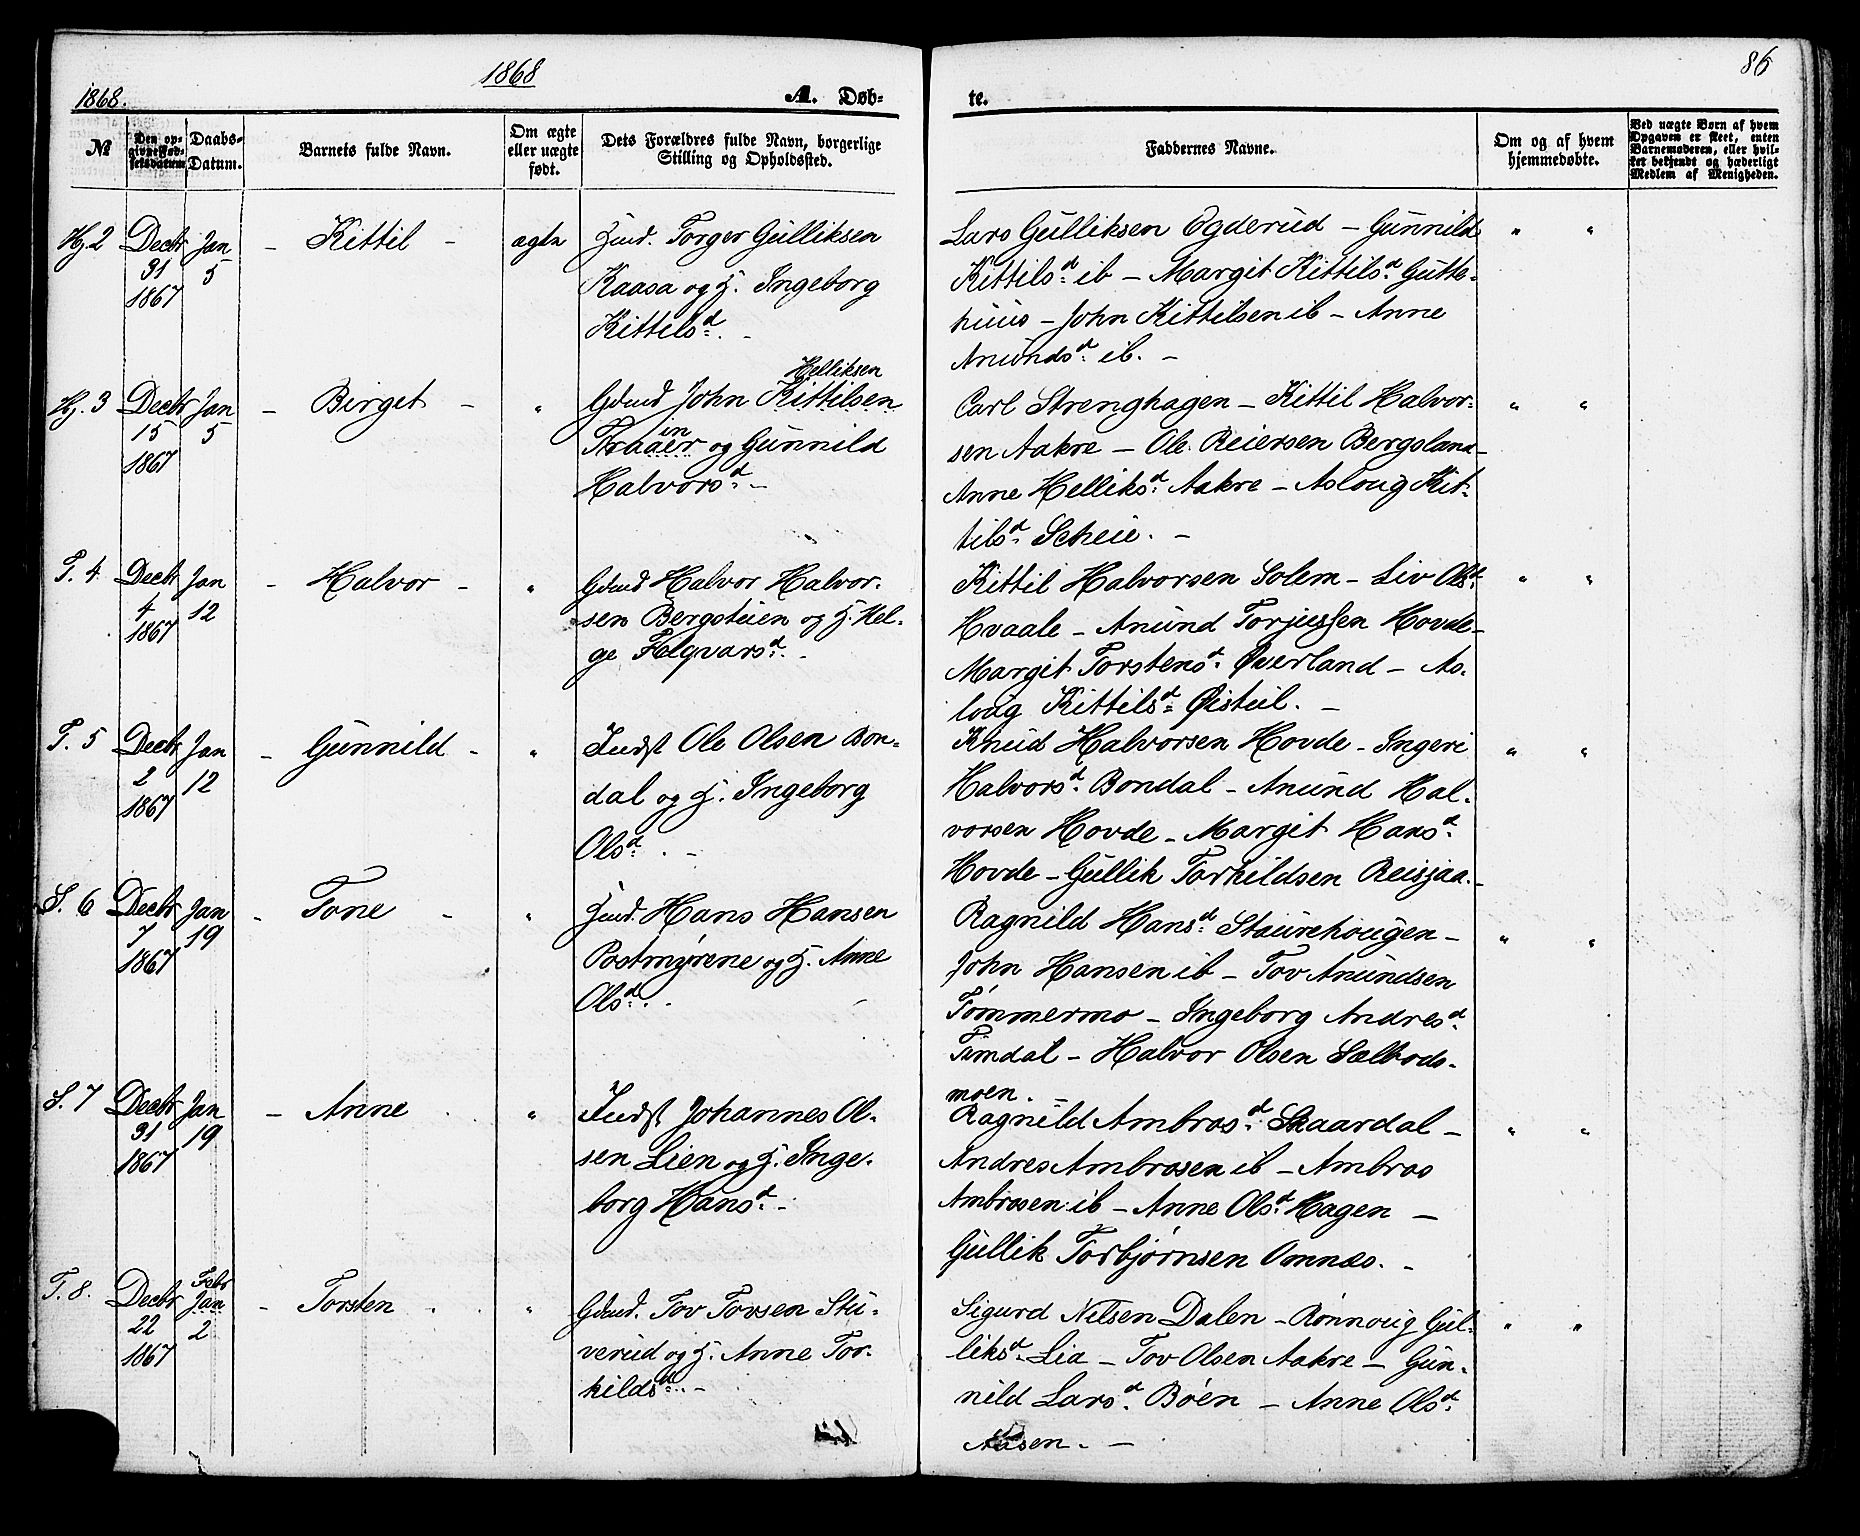 1868
86
1868.
A. Døb-
te.
№
Den op-
givne Fød-
selsdatum.
Daabs-
Datum.
Barnets fulde Navn.
Om ægte
eller uægte
født.
Dets Forældres fulde Navn, borgerlige
Stilling og Opholdssted.
Faddernes Navne.
Om og af hvem
hjemmedøbte.
Ved uægte Børn af hvem
Opgaven er skeet, enten
Barnemoderen, eller hvil-
ket bekjendt og hæderligt
Medlem af Menigheden.
Hj. 2
Decbr
31
1867
Jan
5
- Kittil -
ægte
Torger Gulliksen
Kaasa og H. Ingeborg
Kittilsd. -
Lars Gulliksen Ogderud - Gunnild
Kittilsd. ib - Margit Kittilsd. Gutte-
huus - John Kittilsen ib - Anne
Anundsd. ib. -
" "
Hj. 3
Decbr
15
1867
Jan
5
- Birget -
"
Helliksen
Gdmd John Kittilsen
en
Traaer og Gunnild
Halvorsd. -
Carl Strenghagen - Kittil Halvor-
sen Aakre - Ole Reiersen Bergsland -
Anne Helliksd. Aakre - Asloug Kit-
tilsd. Scheie. -
" "
T. 4
Decbr
4
1867
Jan
12
- Halvor -
"
Gdmd Halvor Halvor-
sen Bergstuen og H. Hel-
ge Folqvarsd. -
Kittil Halvorsen Solem - Liv Olsd.
Hvaale - Anund Torjussen Hovde -
Margit Torstensd. Øverland - As-
loug Kittilsd. Øisteil. -
" "
T. 5
Decbr
2
1867
Jan
12
- Gunnild -
"
Indst Ole Olsen Bon-
dal og H. Ingeborg
Olsd. -
Knud Halvorsen Hovde - Ingeri
Halvorsd. Bondal - Anund Hal-
vorsen Hovde - Margit Hansd.
Hovde - Gullik Torkildsen Reisjaa. -
" "
S. 6
Decbr
7
1867
Jan
19
- Tone -
"
Hans Hansen
Postmyrene og H. Anne
Olsd. -
Ragnild Hansd. Staurehougen -
John Hansen ib - Tov Anundsen
Tømmermo - Ingeborg Andresd.
Timdal - Halvor Olsen Sælbods-
moen. -
" "
S. 7
Decbr
31
1867
Jan
19
- Anne
"
Indst Johannes Ol-
sen Lien og H. Inge-
borg Hansd. -
Ragnild Ambrosd. Skaardal -
Andres Ambrosen ib - Ambros
Ambrosen ib - Anne Olsd. Hagen -
Gullik Torbjørnsen Omnæs. -
" "
T. 8.
Decbr
22
1867
Febr
Jan
2
- Torsten
"
Gdmd. Tov Tovsen Stu-
verud og H. Anne Tor-
kildsd. -
Sigurd Nilsen Dalen - Rønnoug Gul-
liksd. Lia - Tov Olsen Aakre - Gun-
nild Larsd. Bøen - Anne Olsd.
Aasen. -
" "